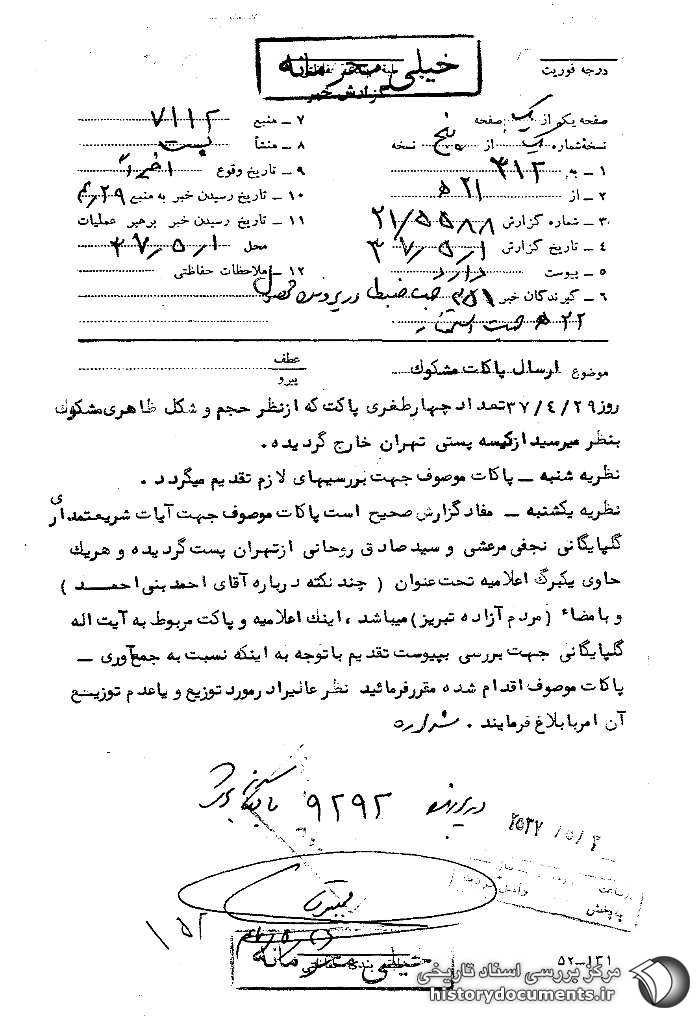 خیلی محرمانه
درجه فوریت
گزارش خبر
صفحه یک از یک صفحه
نسخه شماره یک از پنج نسخه
۱ ـ به ۳۱۲
۲ ـ از ۲۱ ه
۳ ـ شماره گزارش ۲۱/۵۵۸۸
۴ ـ تاریخ گزارش ۳۷/۵/۱
۵ ـ پیوست دارد
۶ ـ گیرندگان خبر
۷ ـ منبع ۷۱۱۲
۸ ـ منشأ پست
۹ ـ تاریخ وقوع اخیراً
۱۰ ـ تاریخ رسیدن خبر به منبع
۱۱ ـ تاریخ رسیدن خبر برهبر عملیات
محل ۳۷/۵/۱
۱۲ ـ ملاحظات حفاظتی
موضوع ارسال پاکات مشکوک
عطف
پیرو
روز ۳۷/۴/۲۹ تعداد چهار طغری پاکت که از نظر حجم و شکل ظاهری مشکوک
بنظر میرسید از کیسه پستی تهران خارج گردیده .
نظریه شنبه ـ پاکات موصوف جهت بررسیهای لازم تقدیم میگردد .
نظریه یکشنبه ـ مفاد گزارش صحیح است پاکات موصوف جهت آیات شریعتمداری
گلپایگانی نجفی مرعشی و سید صادق روحانی از تهران پست گردیده و هریک
حاوی یکبرگ اعلامیه تحت عنوان ( چند نکته درباره آقای احمد بنی احمد )
و بامضاء (مردم آزاده تبریز) میباشد ، اینک اعلامیه و پاکت مربوط به آیت اله
گلپایگانی جهت بررسی بپیوست تقدیم با توجه به اینکه نسبت به جمع آوری ـ
پاکات موصوف اقدام شده مقرر فرمائید نظر عالیرا در مورد توزیع و یا عدم توزیع
آن امر بابلاغ فرمایند .
۹۲۹۲
۱۵۲
خیلی محرمانه
۵۲-۱۳۱
مرکز بررسی اسناد تاریخی
historydocuments.ir